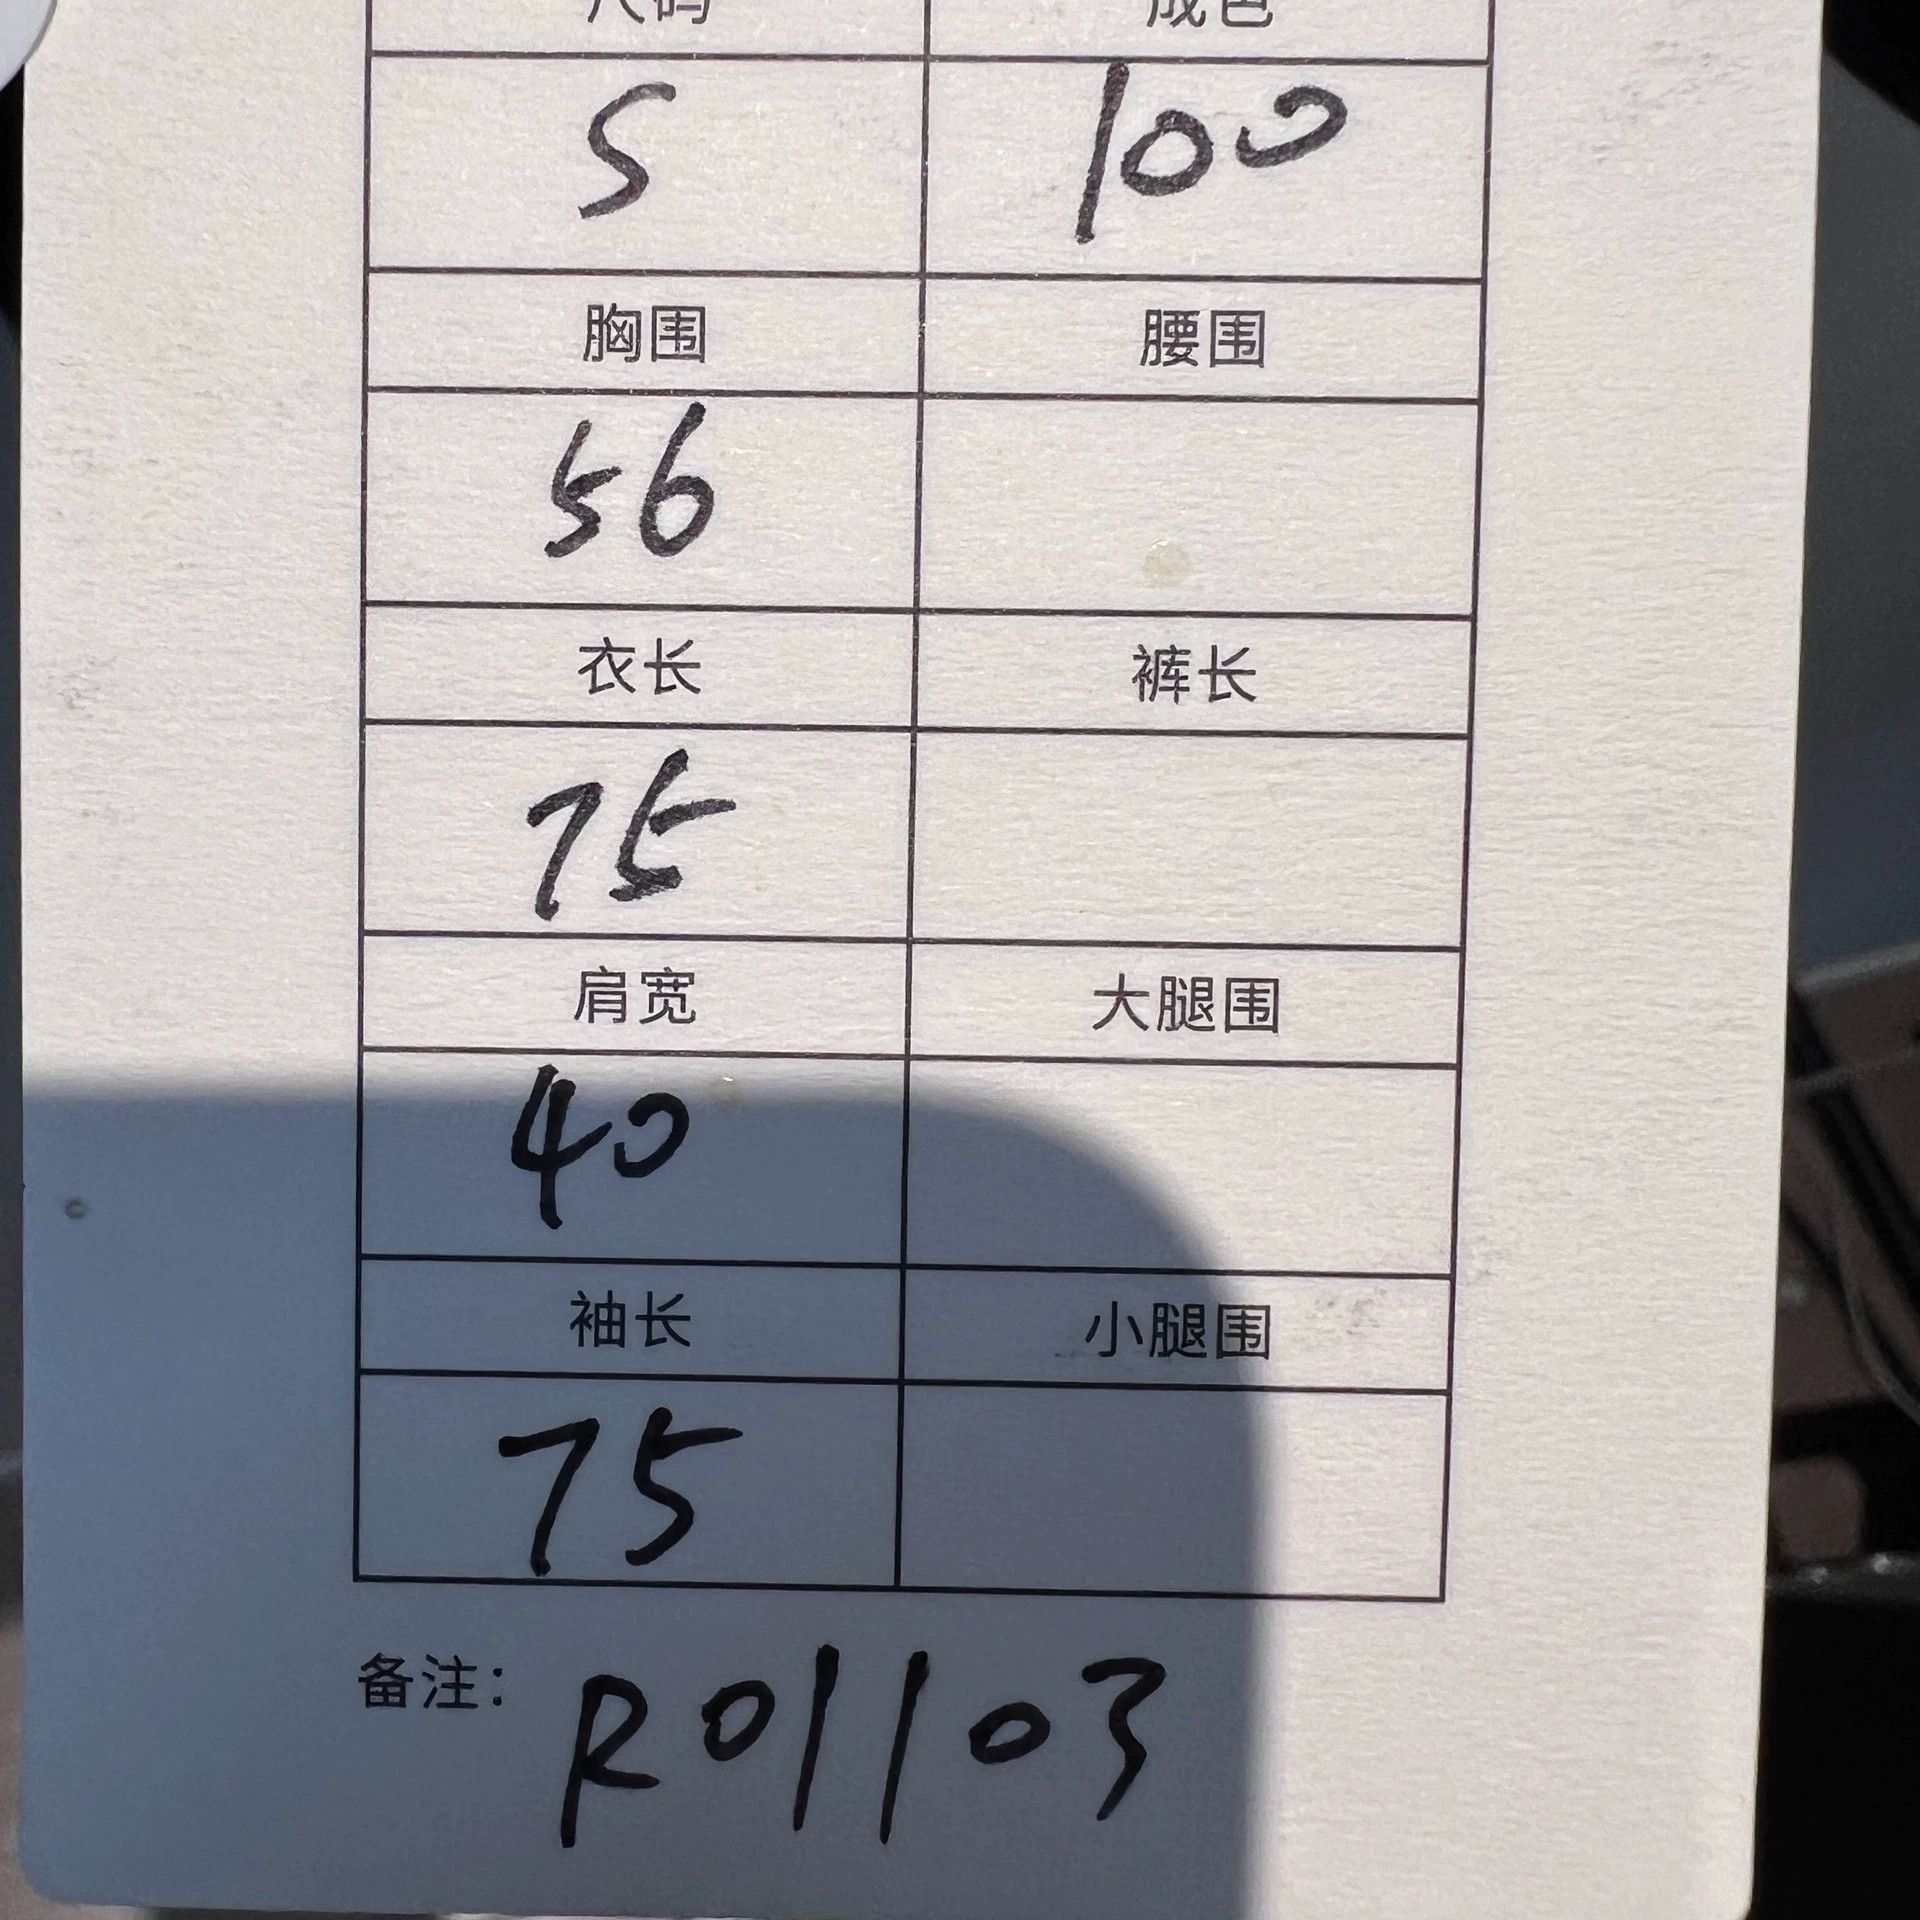 尺码 成色
S 100
胸围 腰围
56
衣长 裤长
75
肩宽 大腿围
40
袖长 小腿围
75
备注: R01103